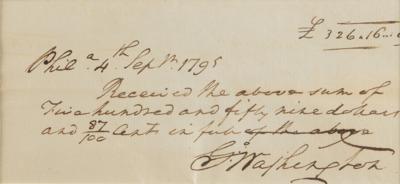 £ 326.16
Phila. 4th Sepr. 1795
Received the above sum of
Five hundred and fifty nine dollars
and 87/100 Cents in full of the above
Go: Washington